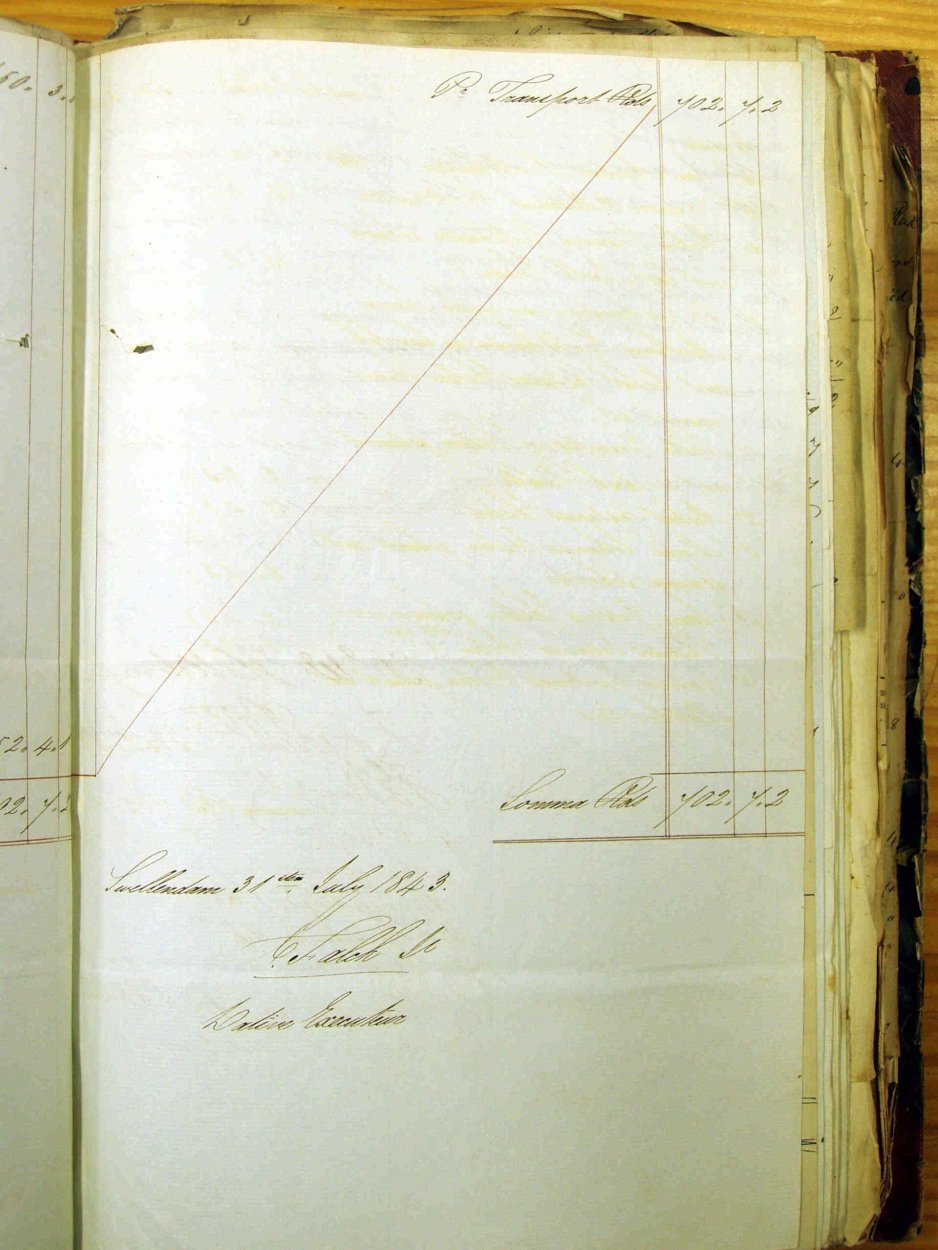 60. 3.
Pr Transport Rds 702. 7. 2
52. 4.
702. 7. 2
Somma Rds 702. 7. 2
Swellendam 31sten July 1843.
Falck Jr
Dative Executeur